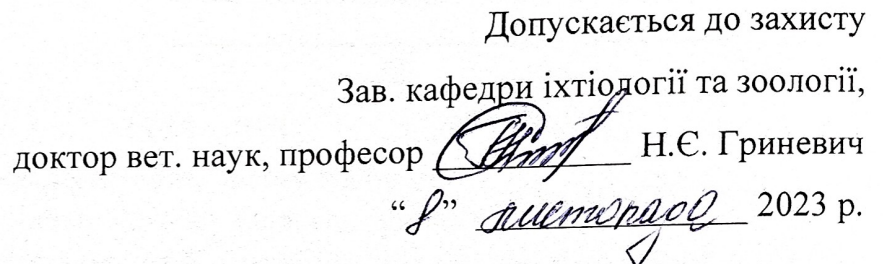 Допускається до захисту
Зав. кафедри іхтіології та зоології,
доктор вет. наук, професор Н.Є. Гриневич
“8” листопада 2023 р.